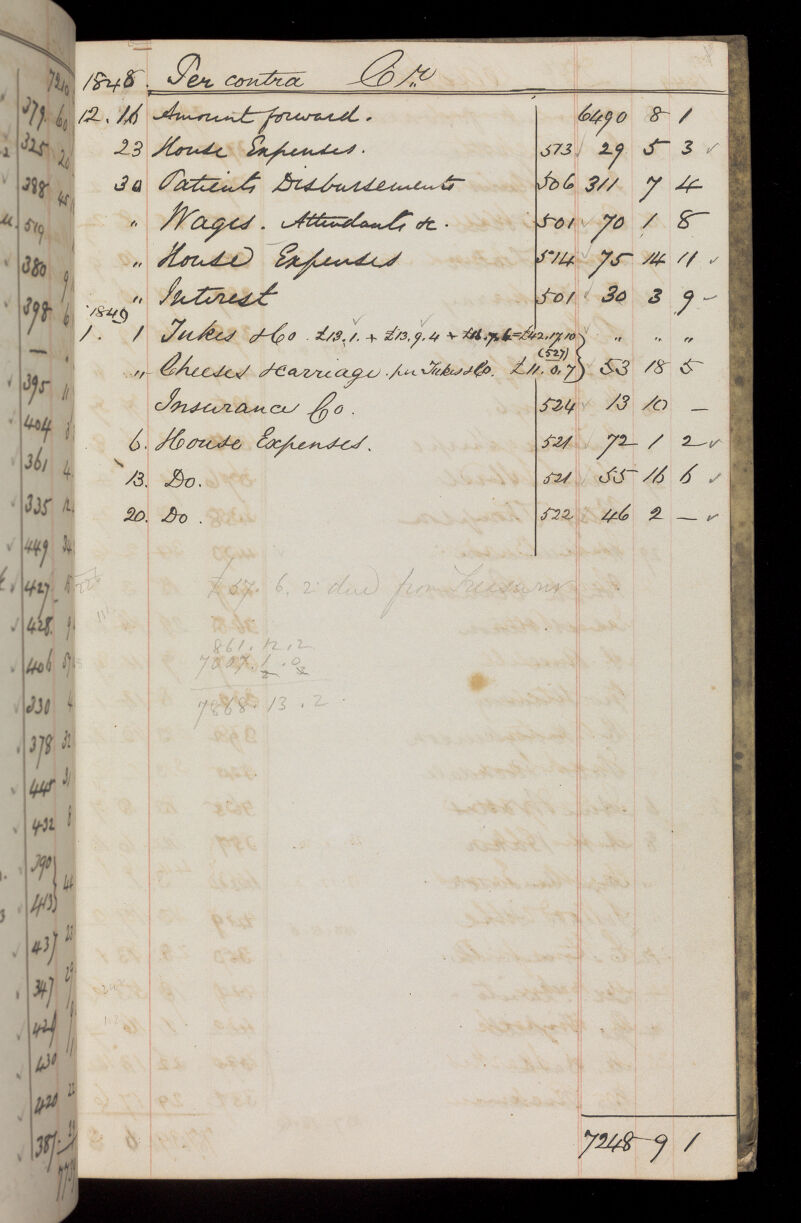 1848. Per contra Cr
12. 16 Amount forward. 6490 8 1
23 House Expenses. 513 29 5 3
30 Patients Disbursements 506 311 7 4
" Wages. Attendants &c. 501 70 1 8
" House Expenses 514 75 14 11
" Interest 501 30 3 9
1849
1. 1 Tukes & Co. £13.1. + £13.9.4 + £16.7.6 = £42.17.10 " " "
" Cheeses & carriage. per Tukes & Co. £11.0.7 (527) 53 18 5
Insurance Co. 524 13 10 —
6. House Expenses. 521 72 1 2
13. Do. 521 55 16 6
20. Do. 522 46 2 —
£ 67. 6. 2 due from Treasurer
861. 12. 2
7007. 1. 0
7868. 13. 2
7248 9 1
7210
379 60
325 20
398 45
519
380 9
398 6
—
395 11
404
361 4
335 12
449
427
428 9
406
330 4
378 32
445 31
432 8
390
413 44
437 23
347 29
429
430
420 22
387